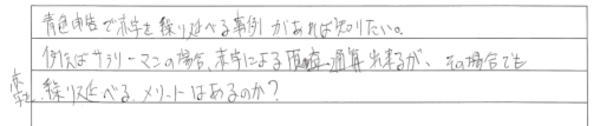 青色申告で赤字を繰り延べる事例があれば知りたい。
例えばサラリーマンの場合、赤字による損益通算出来るが、その場合でも
赤字繰り延べる、メリットはあるのか?